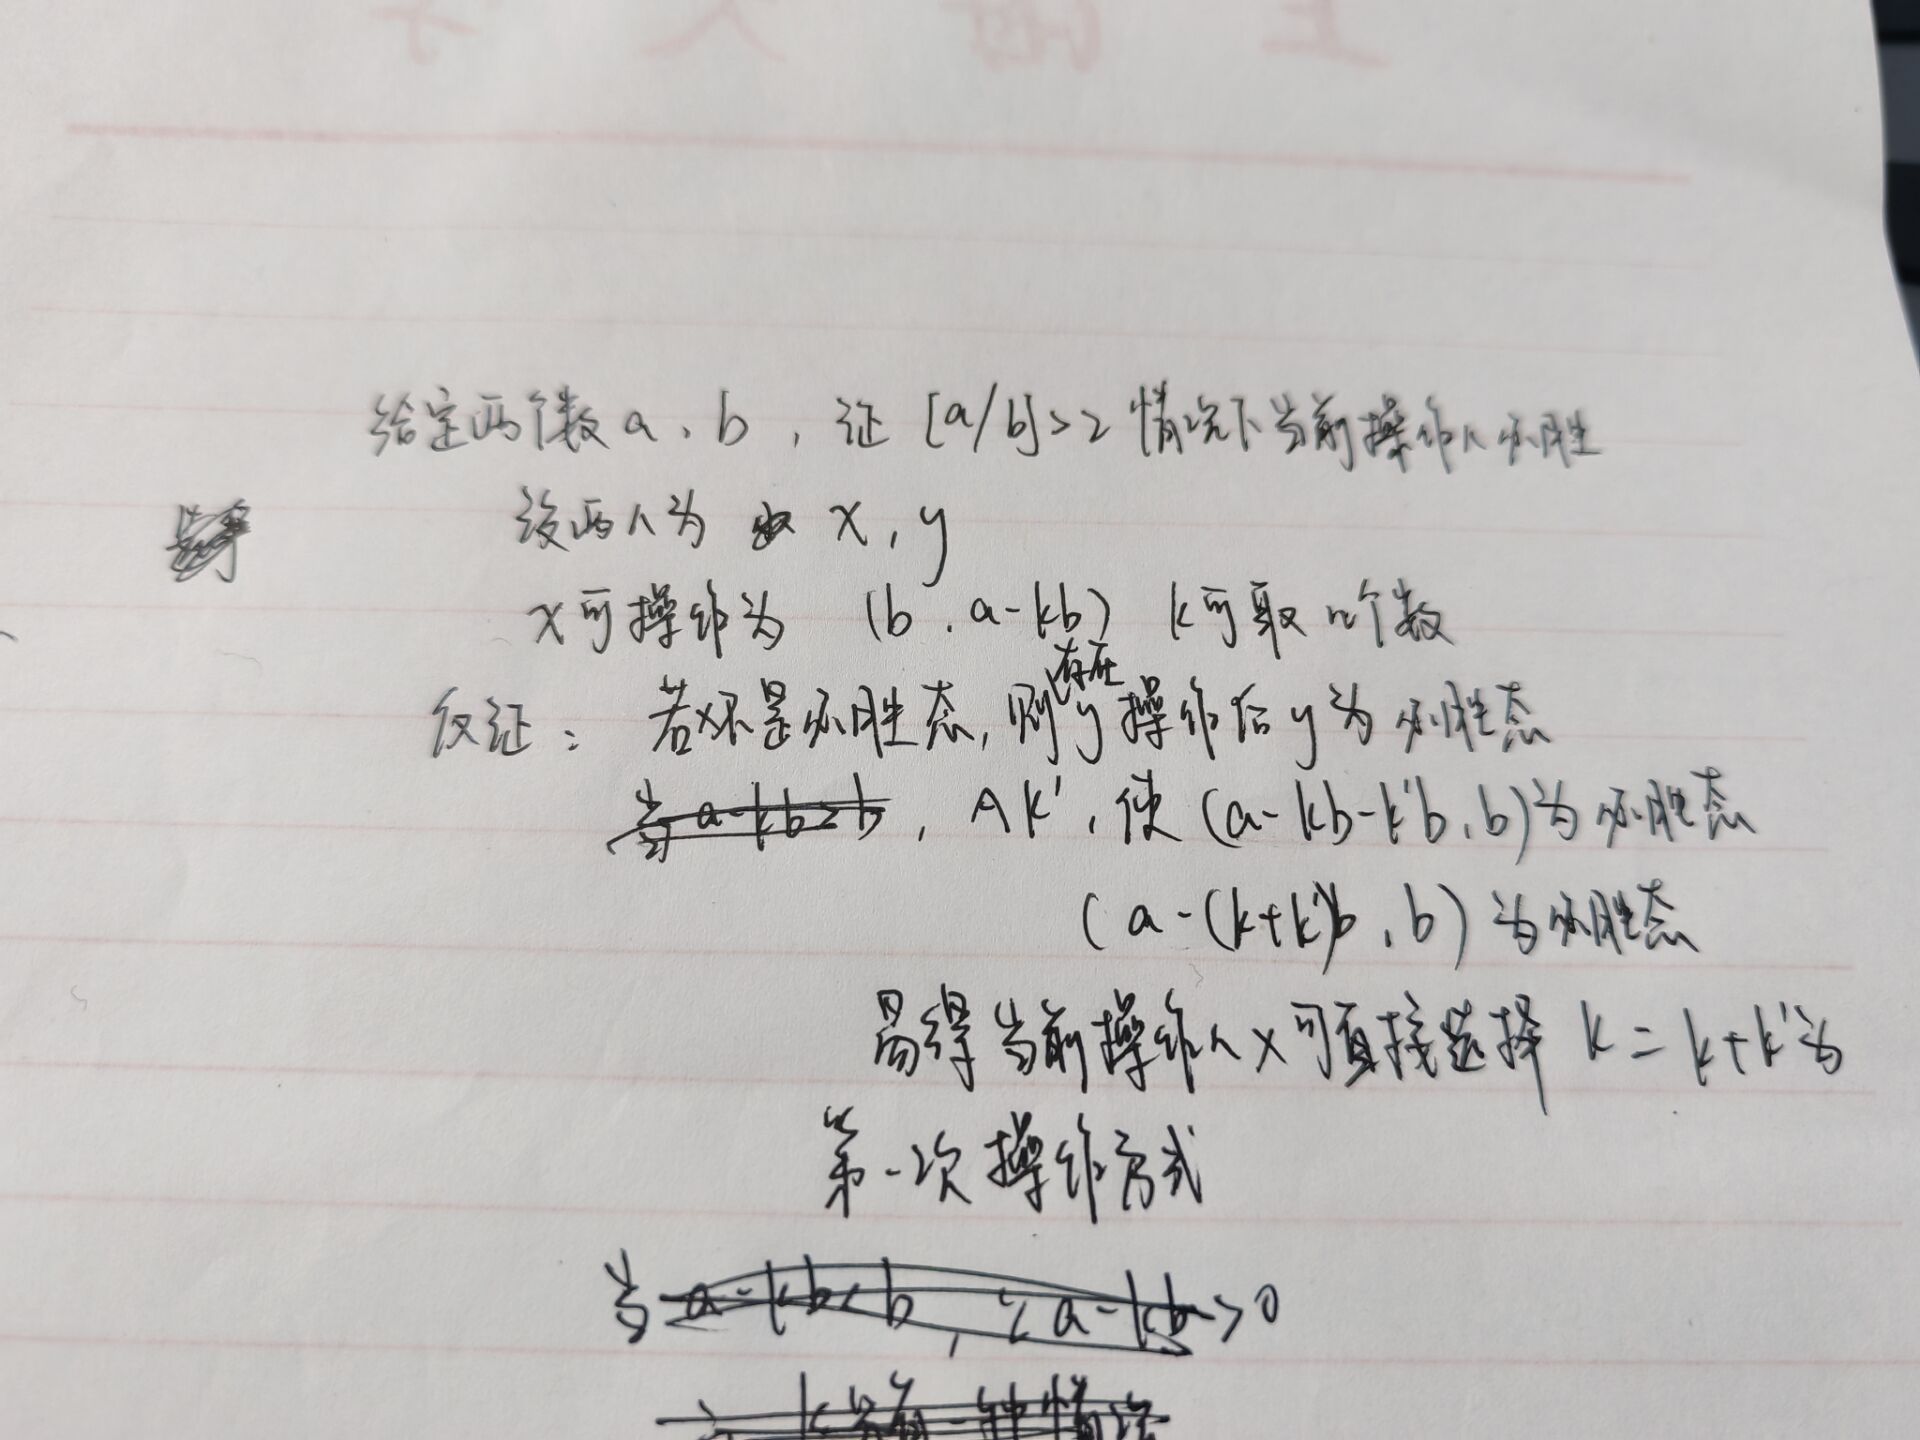 给定两个数 a、b，证 [a/b]>2 情况下当前操作人必胜
设两人为 x, y
x可操作为 (b, a-kb) k可取 n个数
反证：若x不是必胜态，则存在y操作后y为必胜态
, Ak', 使 (a-kb-k'b, b)为必胜态
(a-(k+k')b, b) 为必胜态
易得当前操作人x可直接选择 k = k+k'为
第一次操作方式
当 a-kb<b, ∵ a-kb>0